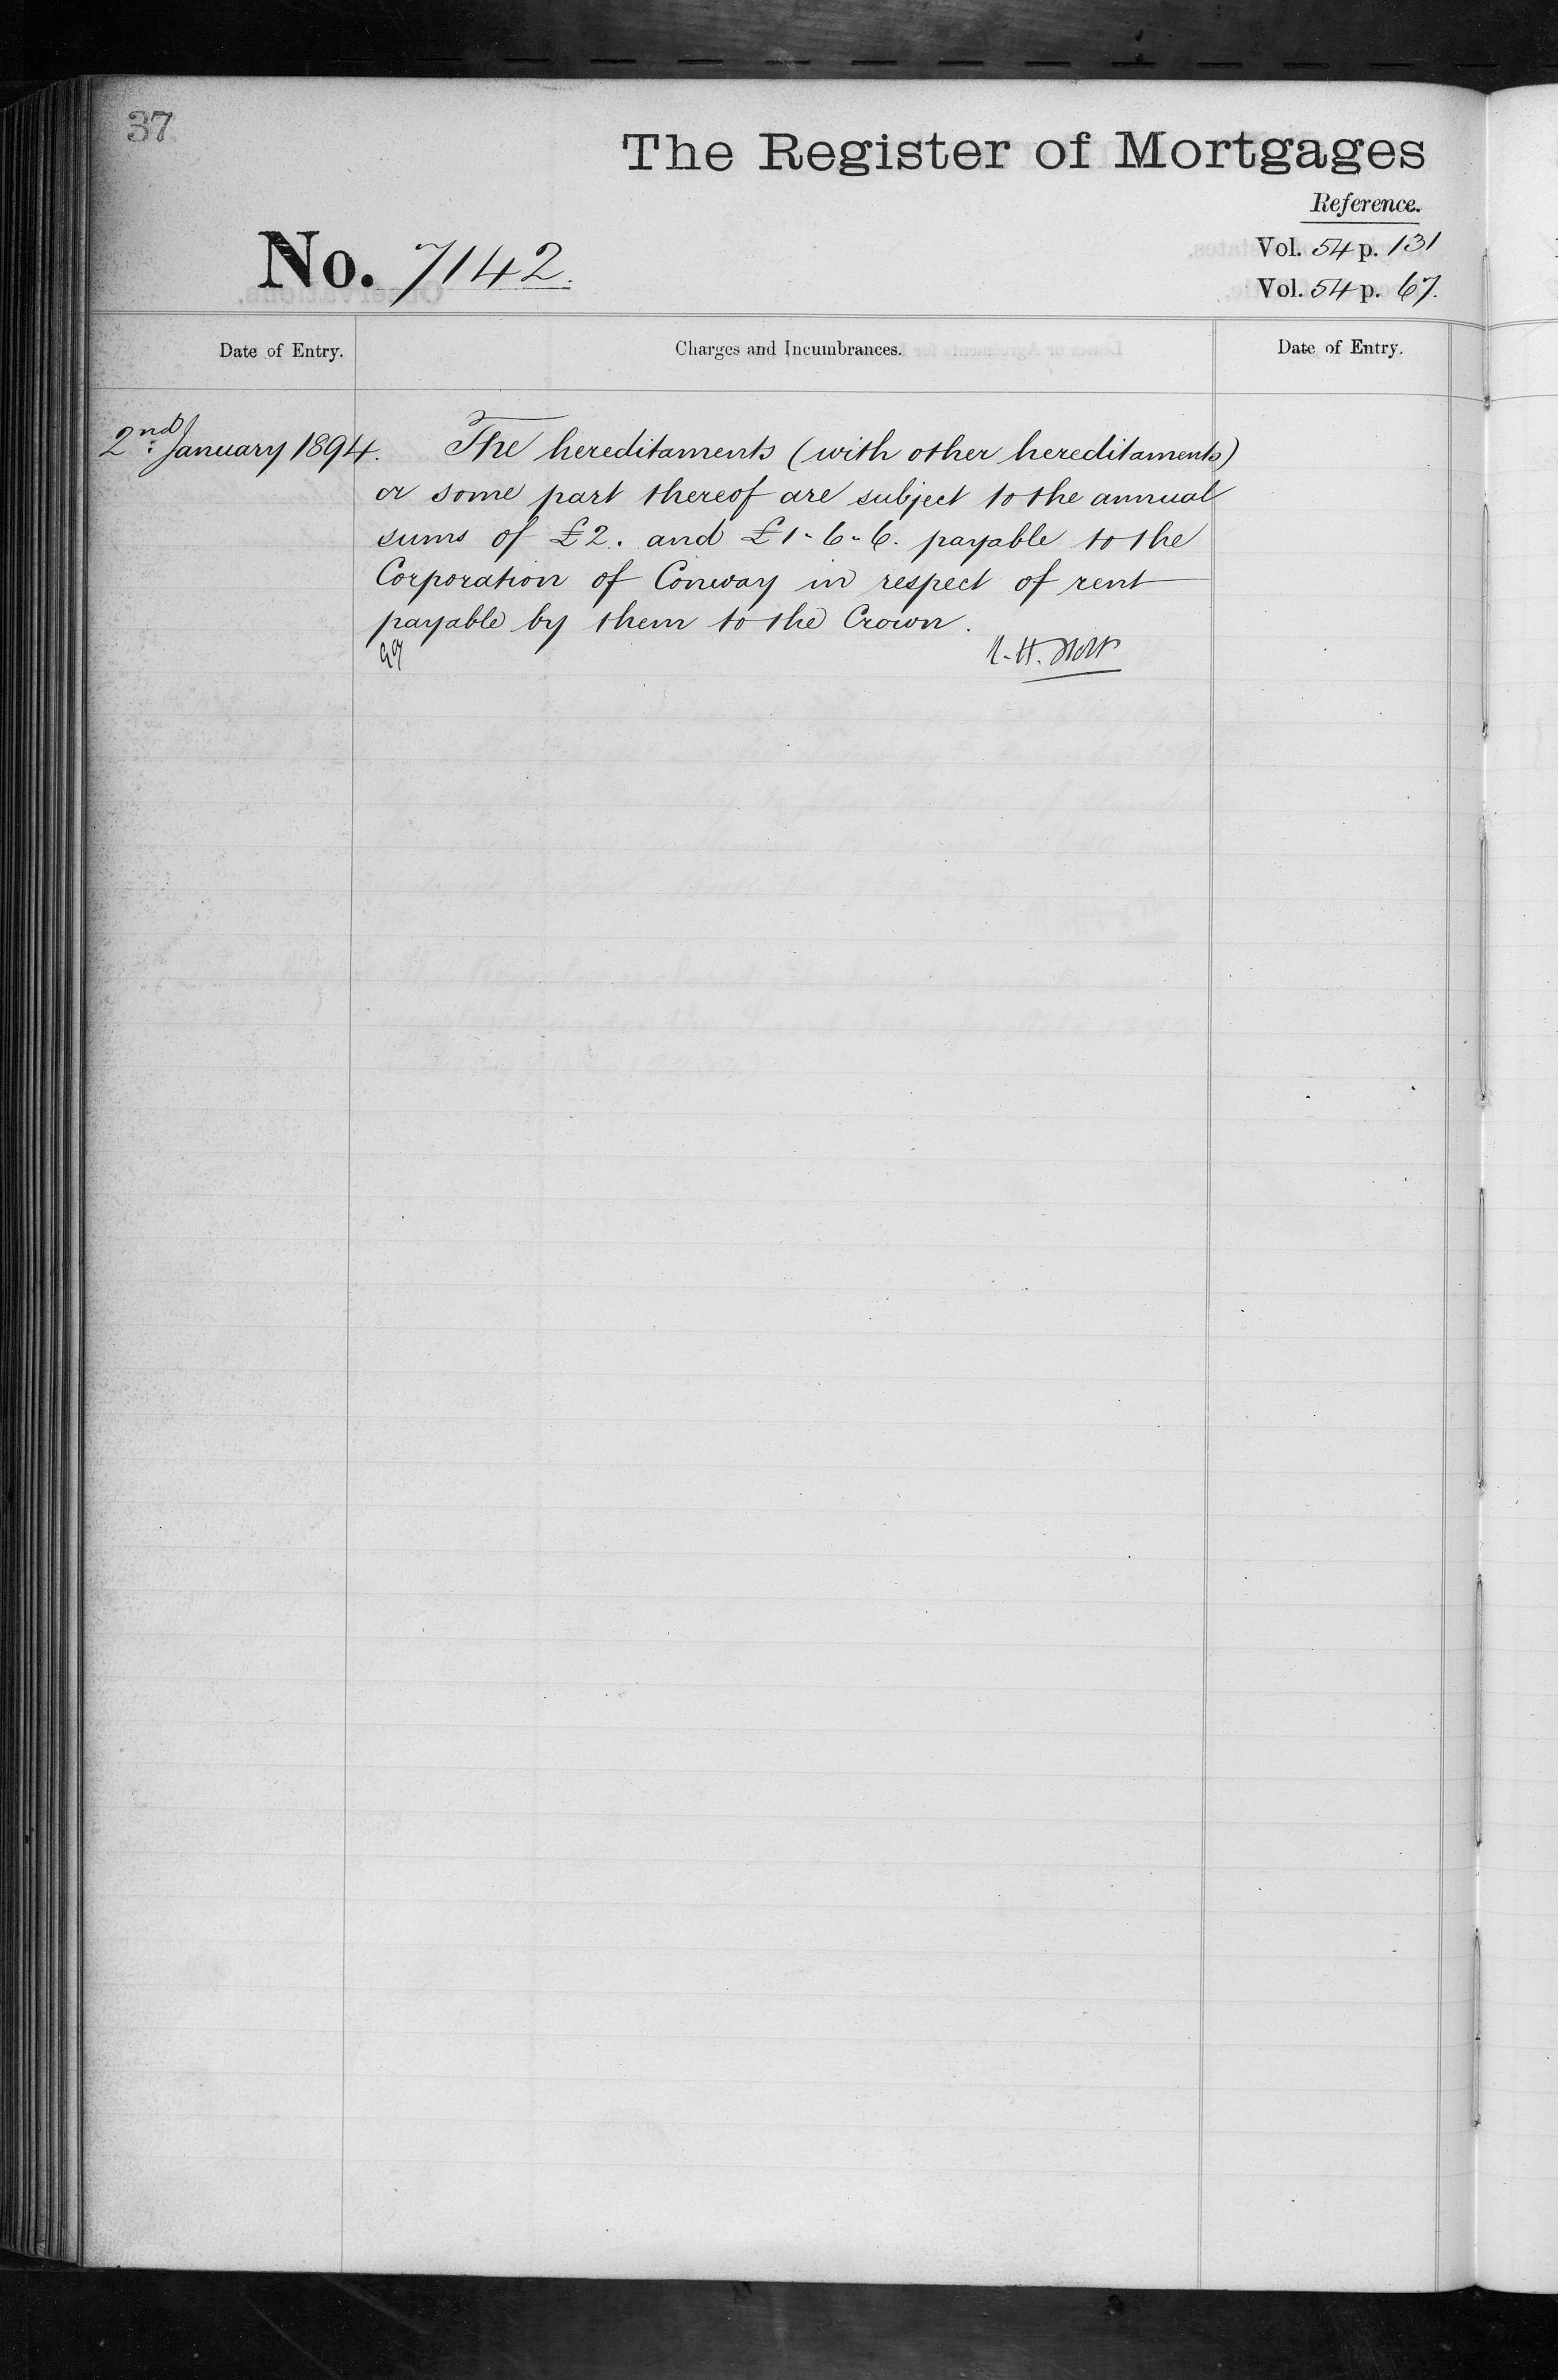 37
The Register of Mortgages
Reference.
No. 7142.
Vol. 54 p. 131
Vol. 54 p. 67.
Date of Entry.
Charges and Incumbrances.
Date of Entry.
2nd January 1894.
The hereditaments (with other hereditaments)
or some part thereof are subject to the annual
sums of £2. and £1-6-6. payable to the
Corporation of Conway in respect of rent
payable by them to the Crown.